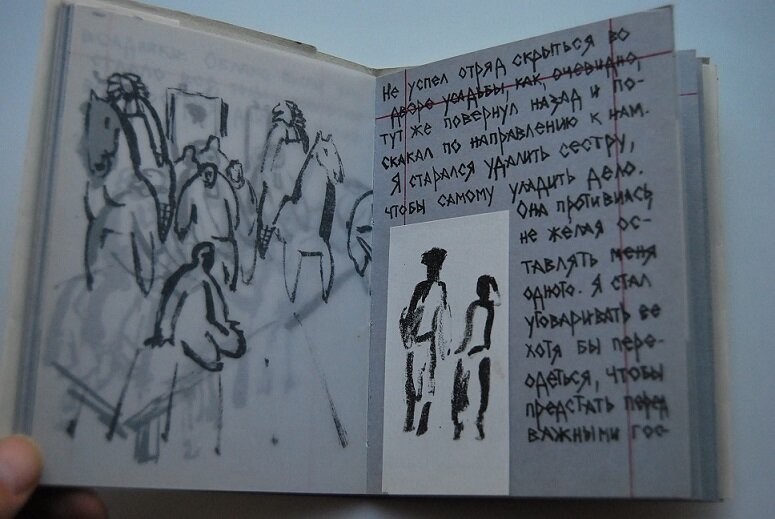 Не успел отряд скрыться во
дворе усадьбы, как, очевидно,
тут же повернул назад и по-
скакал по направлению к нам.
Я старался удалить сестру,
чтобы самому уладить дело.
Она противилась
не желая ос-
тавлять меня
одного. Я стал
уговаривать ее
хотя бы пере-
одеться, чтобы
предстать перед
важными гос-